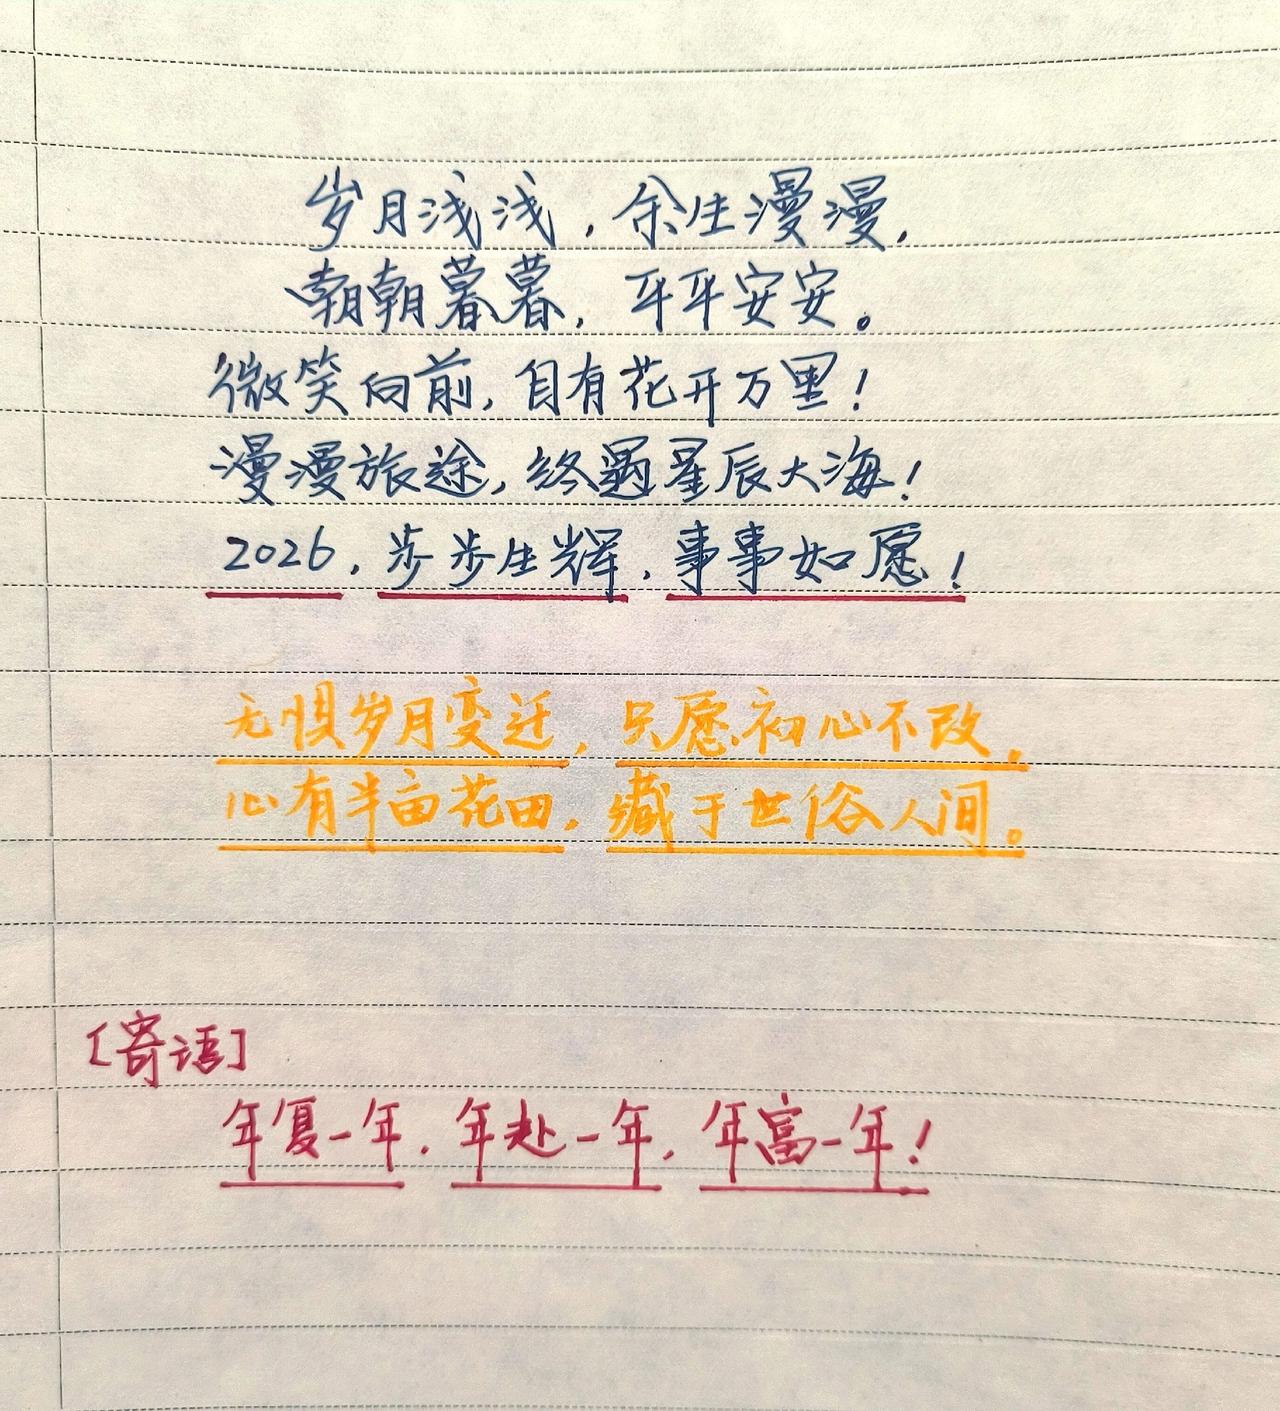 岁月浅浅，余生漫漫，
朝朝暮暮，平平安安。
微笑向前，自有花开万里！
漫漫旅途，终遇星辰大海！
2026，步步生辉，事事如愿！
无惧岁月变迁，只愿初心不改，
心有半亩花田，藏于世俗人间。
[寄语]
年复一年，年赴一年，年富一年！